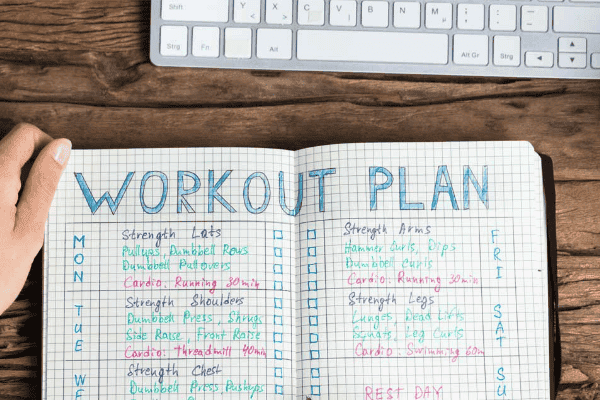 Shift Y < X > C V B N M ; : _ -
Strg Fn Alt Alt Gr Strg
WORKOUT PLAN
MON
Strength Lats
Pullups, Dumbbell Rows
Dumbbell Pullovers
Cardio: Running 30min
TUE
Strength Shoulders
Dumbbell Press, Shrugs
Side Raise, Front Raise
Cardio: Threadmill 40min
WE
Strength Chest
Dumbbell Press, Pushups
FRI
Strength Arms
Hammer Curls, Dips
Dumbbell Curls
Cardio: Running 30min
SAT
Strength Legs
Lunges, Dead Lifts
Squats, Leg Curls
Cardio: Swimming 60m
SU
REST DAY